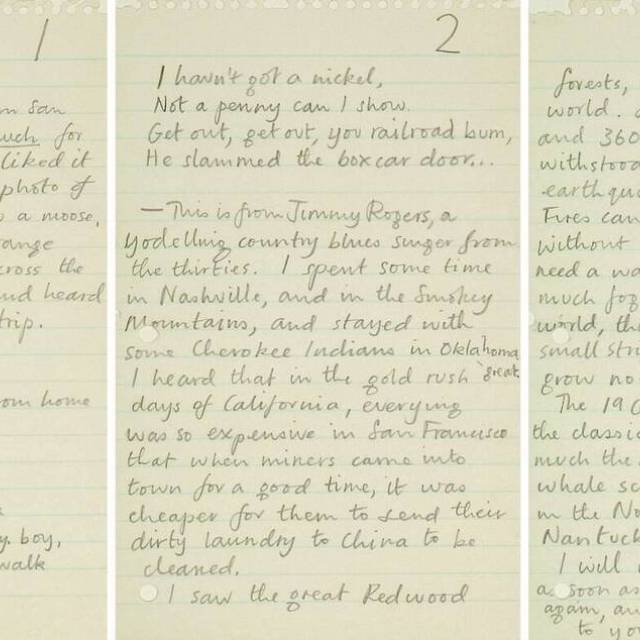 1
m San
uch for
liked it
photo of
a moose,
ange
cross the
and heard
trip.
om home
y boy,
walk
2
I havn't got a nickel,
Not a penny can I show.
Get out, get out, you railroad bum,
He slammed the boxcar door...
— This is from Jimmy Rogers, a
yodelling country blues singer from
the thirties. I spent some time
in Nashville, and in the Smokey
Mountains, and stayed with
some Cherokee Indians in Oklahoma
I heard that in the gold rush great
days of California, everying
was so expensive in San Francisco
that when miners came into
town for a good time, it was
cheaper for them to send their
dirty laundry to China to be
cleaned.
I saw the great Redwood
forests,
world.
and 360
withstood
earthqu
Fires can
without
need a wa
much fog
world, th
small stri
grow no
The 190
the classic
much the
whale sc
in the No
Nantuck
I will
as soon as
again, au
to yo